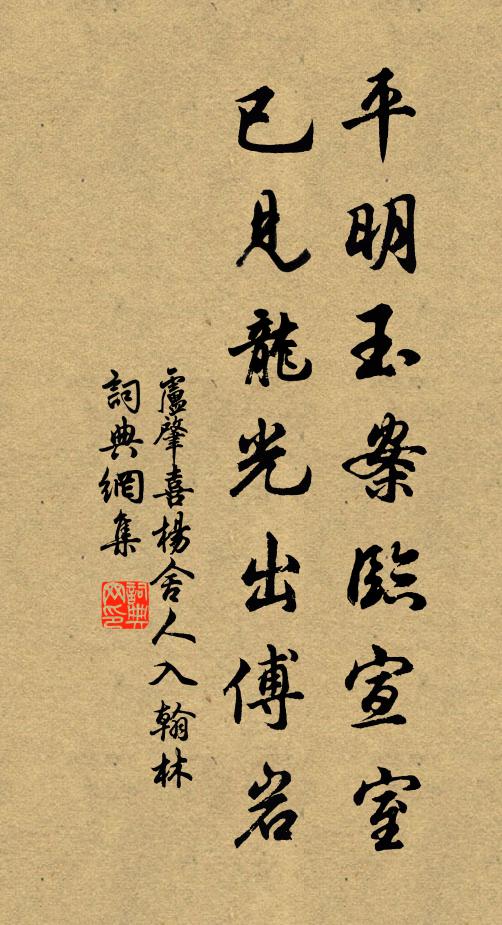 平明玉案臨宣室
已見龍光出傅岩
盧肇喜楊舍人入翰林
詞典網集
詞典網印